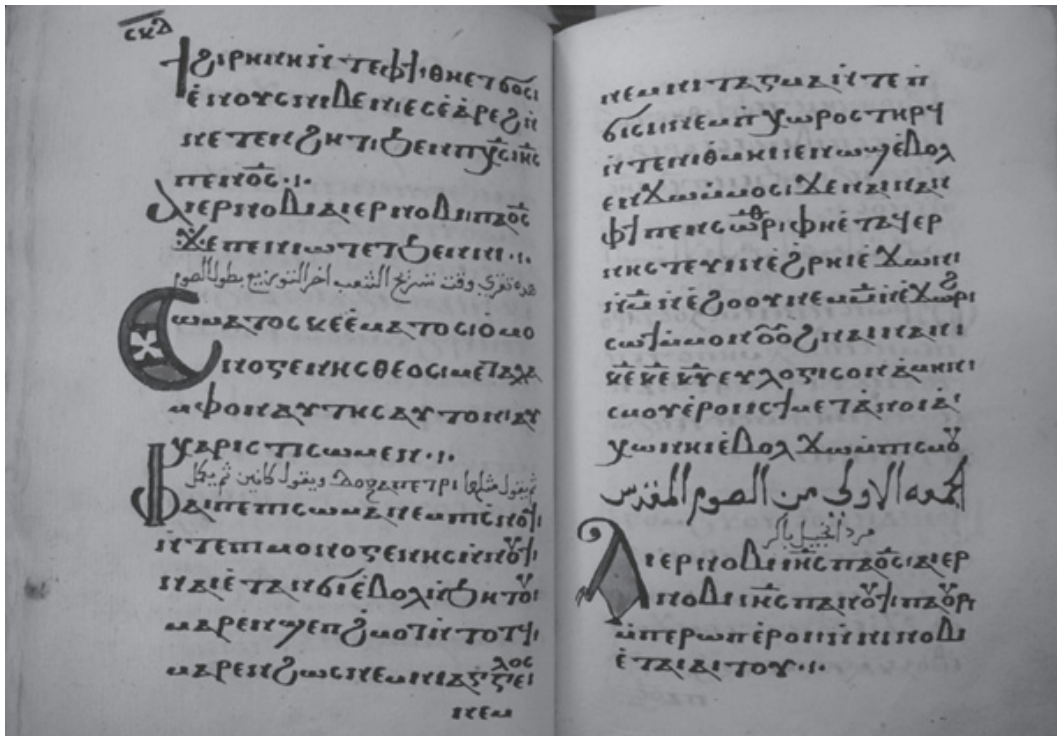 ⲥⲕⲇ
Ϯϩⲓⲣⲏⲛⲏ ⲛ̀ⲧⲉ ⲫϯ ⲑⲏⲉⲧϭⲟⲥⲓ
ⲉ̀ⲛⲟⲩⲥ ⲛⲓⲃⲉⲛ ⲉⲥⲉ̀ⲁⲣⲉϩ ⲛ̀
ⲛⲉⲧⲉⲛϩⲏⲧ ϧⲉⲛ ⲡⲭ̅ⲥ̅ ⲓⲏ̅ⲥ̅
ⲡⲉⲛⲟ̅ⲥ̅
Ⲁⲓⲉⲣⲛⲟⲃⲓ ⲁⲓⲉⲣⲛⲟⲃⲓ ⲡⲁⲟ̅ⲥ̅
ϫⲉ ⲡⲉⲛⲓⲱⲧ ⲉⲧϧⲉⲛ ⲛⲓ
هذه تقري وقت تسريح الشعب اخر التوزيع بطول الصوم
Ⲥⲱⲙⲁⲧⲟⲥ ⲕⲉ ⲉ̀ⲙⲁⲧⲟⲥ ⲟ̀ⲙⲟ
ⲛⲟⲅⲉⲛⲏⲥ ⲑⲉⲟⲥ ⲙⲉⲧⲁⲗⲁ
ⲙⲫⲟⲛ ⲁⲩⲧⲏⲥ ⲁⲩⲧⲟⲛ ⲁⲩ
ⲭⲁⲣⲓⲥⲧⲓⲥⲱⲙⲉⲛ
ثم يقول مثلها ⲇⲟⲝⲁⲡⲉⲧⲣⲓ ويقول كانين ثم يكمل
Ⲫⲁⲓ ⲡⲉ ⲡⲓⲥⲱⲙⲁ ⲛⲉⲙ ⲡⲓⲥⲛⲟϥ
ⲛ̀ⲧⲉ ⲡⲓⲙⲟⲛⲟⲅⲉⲛⲏⲥ ⲛ̀ⲛⲟⲩϯ
ⲛⲁⲓ ⲉ̀ⲧⲁⲛϭⲓ ⲉ̀ⲃⲟⲗ ⲛ̀ϧⲏⲧⲟⲩ
ⲙⲁⲣⲉⲛϣⲉⲡϩⲙⲟⲧ ⲛ̀ⲧⲟⲧϥ
ⲙⲁⲣⲉⲛϩⲱⲥ ⲛⲉⲙ ⲛⲓⲁⲅⲅⲉⲗⲟⲥ
ⲛⲉⲙ
ⲛⲉⲙ ⲛⲓⲧⲁⲅⲙⲁ ⲛ̀ⲧⲉ ⲡ
ϭⲓⲥⲓ ⲛⲉⲙ ⲡⲭⲱⲣⲟⲥ ⲧⲏⲣϥ
ⲛ̀ⲧⲉ ⲛⲓⲑⲙⲏⲓ ⲉⲛⲱϣ ⲉ̀ⲃⲟⲗ
ⲉⲛϫⲱ ⲙ̀ⲙⲟⲥ ϫⲉ ⲛⲁⲓ ⲛⲁⲛ
ⲫϯ ⲡⲉⲛⲥⲱ̅ⲣ̅ ⲫⲏⲉ̀ⲧⲁϥⲉⲣ
ⲛⲏⲥⲧⲉⲩⲓⲛ ⲉ̀ϩⲣⲏⲓ ⲉ̀ϫⲱⲛ
ⲛ̀ⲙ̅ ⲛ̀ⲉ̀ϩⲟⲟⲩ ⲛⲉⲙ ⲙ̅ ⲛ̀ⲉ̀ϫⲱⲣϩ
ⲥⲱϯ ⲙ̀ⲙⲟⲛ ⲟⲩⲟϩ ⲛⲁⲓ ⲛⲁⲛ
ⲕ̅ⲉ̅ ⲕ̅ⲉ̅ ⲕ̅ⲉ̅ ⲉⲩⲗⲟⲅⲓⲥⲟⲛ ⲁⲙⲏⲛ
ⲥⲙⲟⲩ ⲉ̀ⲣⲟⲓ ⲓⲥ ϯⲙⲉⲧⲁⲛⲟⲓⲁ
ⲭⲱ ⲛⲏⲓ ⲉ̀ⲃⲟⲗ ϫⲱ ⲙ̀ⲡⲓⲥⲙⲟⲩ
الجمعه الاولي من الصوم المقدس
مرد انجيل باكر
Ⲁⲓⲉⲣⲛⲟⲃⲓ ⲓⲏ̅ⲥ̅ ⲡⲁⲟ̅ⲥ̅ ⲁⲓⲉⲣ
ⲛⲟⲃⲓ ⲓⲏ̅ⲥ̅ ⲡⲁⲛⲟⲩϯ ⲡⲁⲟⲩⲣⲟ
ⲙ̀ⲡⲉⲣⲱⲡ ⲉ̀ⲣⲟⲓ ⲛ̀ⲛⲓⲛⲟⲃⲓ
ⲉ̀ⲧⲁⲓⲁⲓⲧⲟⲩ